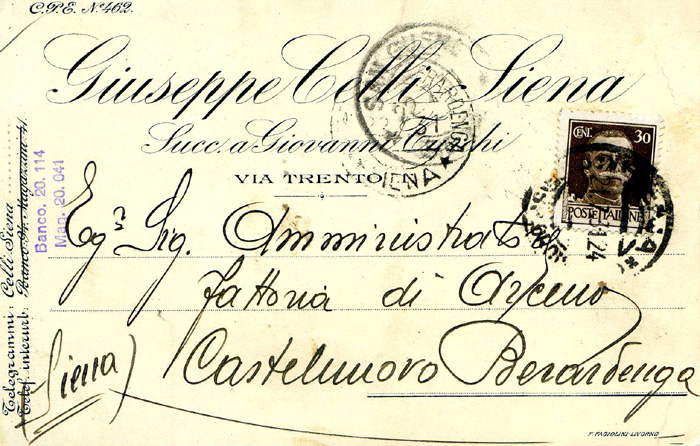 C.P.E. N. 462.
Giuseppe Celli Siena
Succ. a Giovanni
VIA TRENTO
SIENA
CENT. 30
POSTE ITALIANE
Telegrammi: Celli Siena
Telef. interurb. Banco In. Magazzino 41.
Banco. 20.114
Mag. 20.041
Egº Sig. Amministrat
fattoria di Arceno
Castelnuovo Berardenga
(Siena)
F. FAGIOLINI-LIVORNO